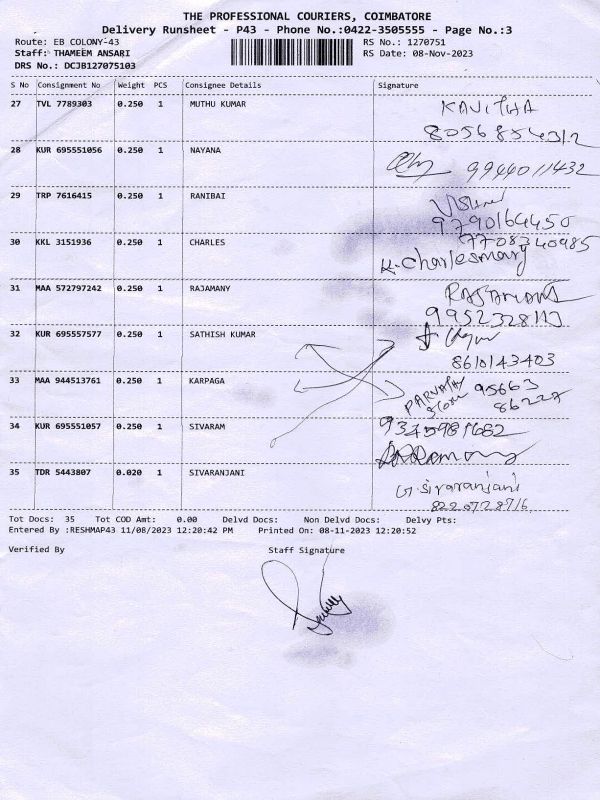 THE PROFESSIONAL COURIERS, COIMBATORE
Delivery Runsheet - P43 - Phone No.:0422-3505555 - Page No.:3
Route: EB COLONY-43 RS No.: 1270751
Staff: THAMEEM ANSARI RS Date: 08-Nov-2023
DRS No.: DCJB127075103
S No Consignment No Weight PCS Consignee Details Signature
27 TVL 7789303 0.250 1 MUTHU KUMAR KAVITHA
8056854312
28 KUR 695551056 0.250 1 NAYANA
9944011432
29 TRP 7616415 0.250 1 RANIBAI
9790164450
30 KKL 3151936 0.250 1 CHARLES 7708340985
K. Charlesmary
31 MAA 572797242 0.250 1 RAJAMANY
9952328113
32 KUR 695557577 0.250 1 SATHISH KUMAR
8610143403
33 MAA 944513761 0.250 1 KARPAGA PARVATHY 95663
store 86227
34 KUR 695551057 0.250 1 SIVARAM
35 TDR 5443807 0.020 1 SIVARANJANI G. Sivaranjani
8220728716
Tot Docs: 35 Tot COD Amt: 0.00 Delvd Docs: Non Delvd Docs: Delvy Pts:
Entered By :RESHMAP43 11/08/2023 12:20:42 PM Printed On: 08-11-2023 12:20:52
Verified By Staff Signature